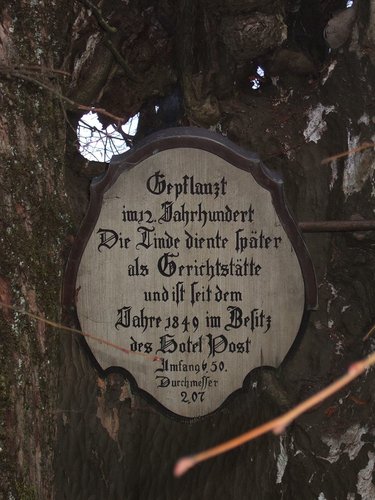 Gepflanzt
im 12. Jahrhundert
Die Linde diente später
als Gerichtstätte
und ist seit dem
Jahre 1849 im Besitz
des Hotel Post
Umfang 6,50.
Durchmesser
2,07